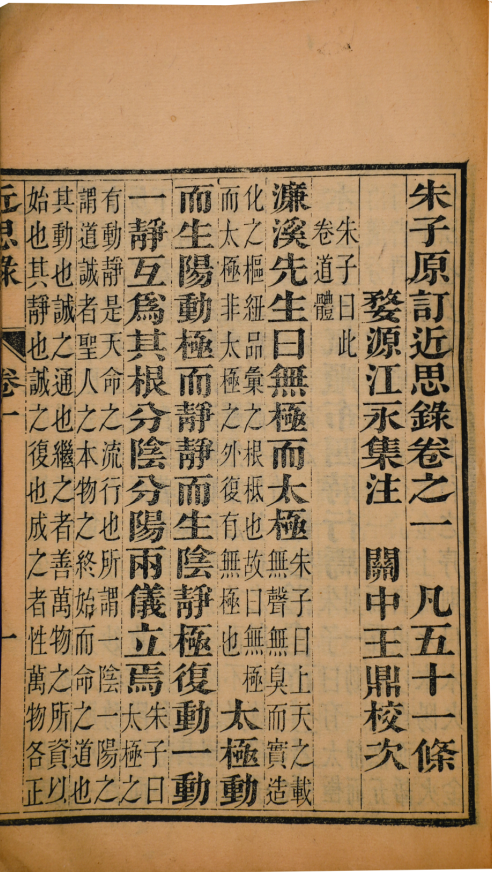 朱子原訂近思錄卷之一　凡五十一條
婺源江永集注　關中王鼎校次
朱子曰此
卷道體
濂溪先生曰無極而太極
朱子曰上天之載
無聲無臭而實造
化之樞紐品彙之根柢也故曰無極
而太極非太極之外復有無極也
太極動
而生陽動極而靜靜而生陰靜極復動一動
一靜互爲其根分陰分陽兩儀立焉
朱子曰
太極之
有動靜是天命之流行也所謂一陰一陽之
謂道誠者聖人之本物之終始而命之道也
其動也誠之通也繼之者善萬物之所資以
始也其靜也誠之復也成之者性萬物各正
近思錄
卷一
一